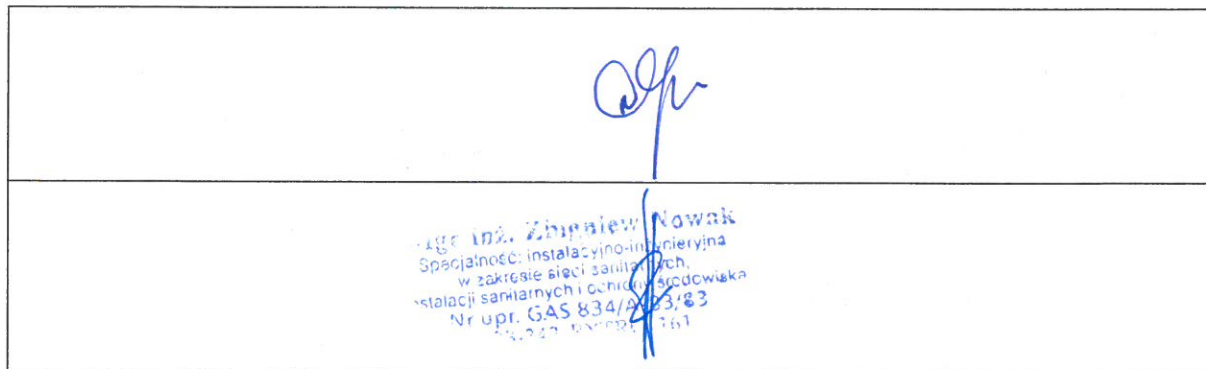 mgr inż. Zbigniew Nowak
Specjalność: instalacyjno-inżynieryjna
w zakresie sieci sanitarnych,
instalacji sanitarnych i ochrony środowiska
Nr upr. GAS 834/A/83/83